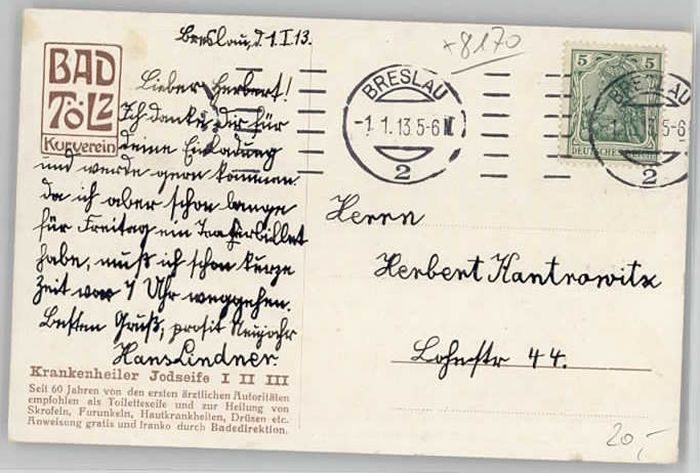 Breslau, d. 1.I.13.
x8170
BAD
TÖLZ
Kurverein
Lieber Herbert!
Ich danke Dir für
deine Einladung
und werde gern kommen.
da ich aber schon lange
für Freitag ein Teaterbillet
habe, muß ich schon kurze
Zeit vor 7 Uhr weggehen.
Besten Gruß, prosit Neujahr
Hans Lindner.
Krankenheiler Jodseife I II III
Seit 60 Jahren von den ersten ärztlichen Autoritäten
empfohlen als Toiletteseife und zur Heilung von
Skrofeln, Furunkeln, Hautkrankheiten, Drüsen etc.
Anweisung gratis und franko durch Badedirektion.
BRESLAU
-1.1.13.5-6N
2
5 5
DEUTSCHES REICH
BRESLAU
13.5-6
2
Herrn
Herbert Kantrowitz
Lohestr 44.
20,-